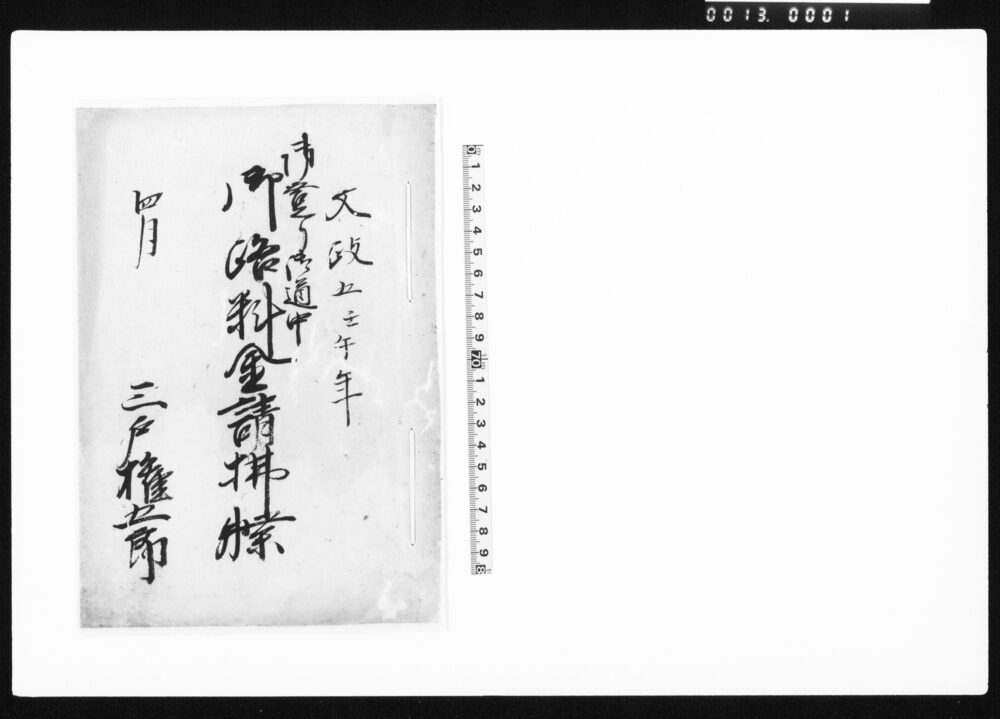 0013. 0001
文政五壬午年
御登り御道中
御路料金請拂牒
四月
三戸権五郎
0 1 2 3 4 5 6 7 8 9 10 1 2 3 4 5 6 7 8 9